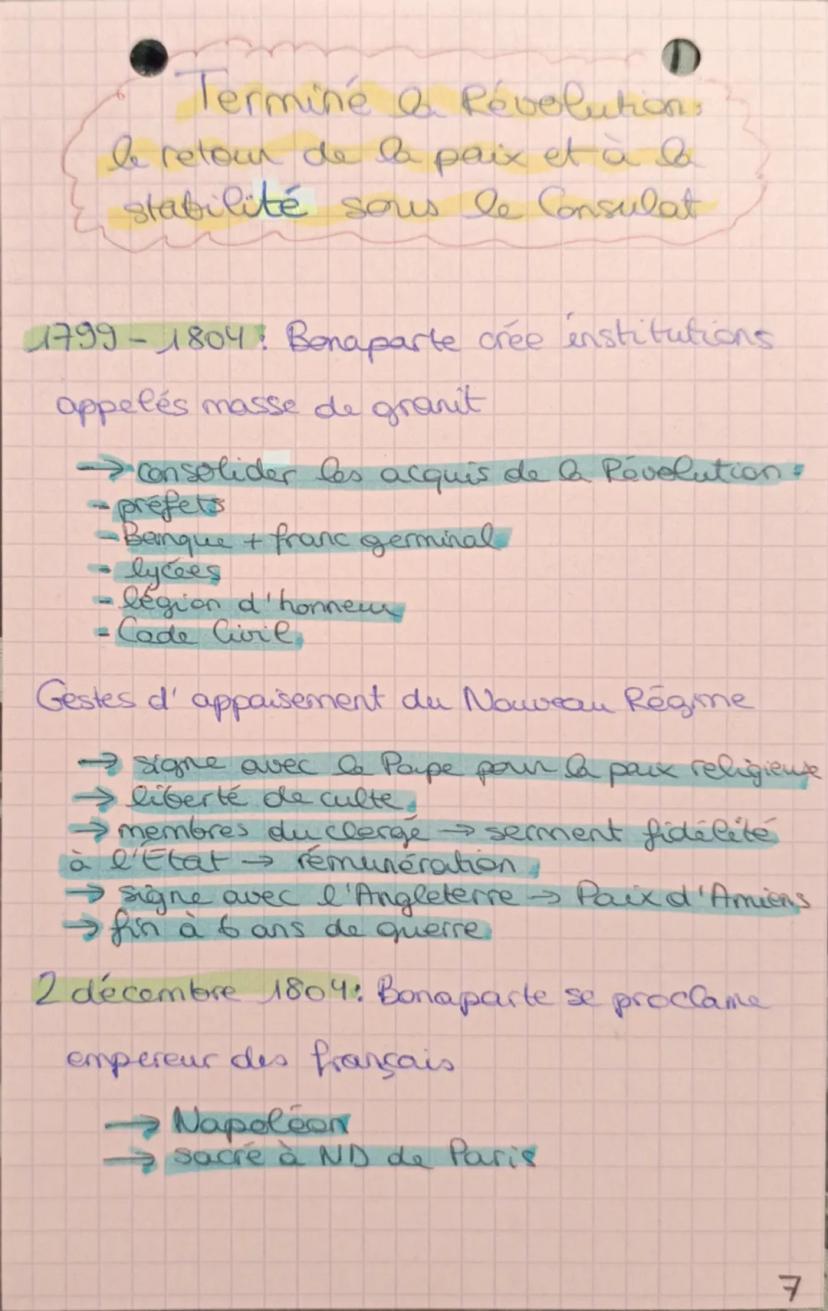 Terminé la Révolution:
le retour de la paix et à la
stabilité sous le Consulat
1799-1804: Bonaparte crée institutions
appelés masse de granit
→ consolider les acquis de la Révolution:
- préfets
- Banque + franc germinal
- lycées
- légion d'honneur
- Code Civil
Gestes d'appaisement du Nouveau Régime
→ signe avec le Pape pour la paix religieuse
→ liberté de culte
→ membres du clergé → serment fidélité
à l'État → rémunération
→ signe avec l'Angleterre → Paix d'Amiens
→ fin à 6 ans de guerre
2 décembre 1804: Bonaparte se proclame
empereur des français
→ Napoléon
→ sacré à ND de Paris
7